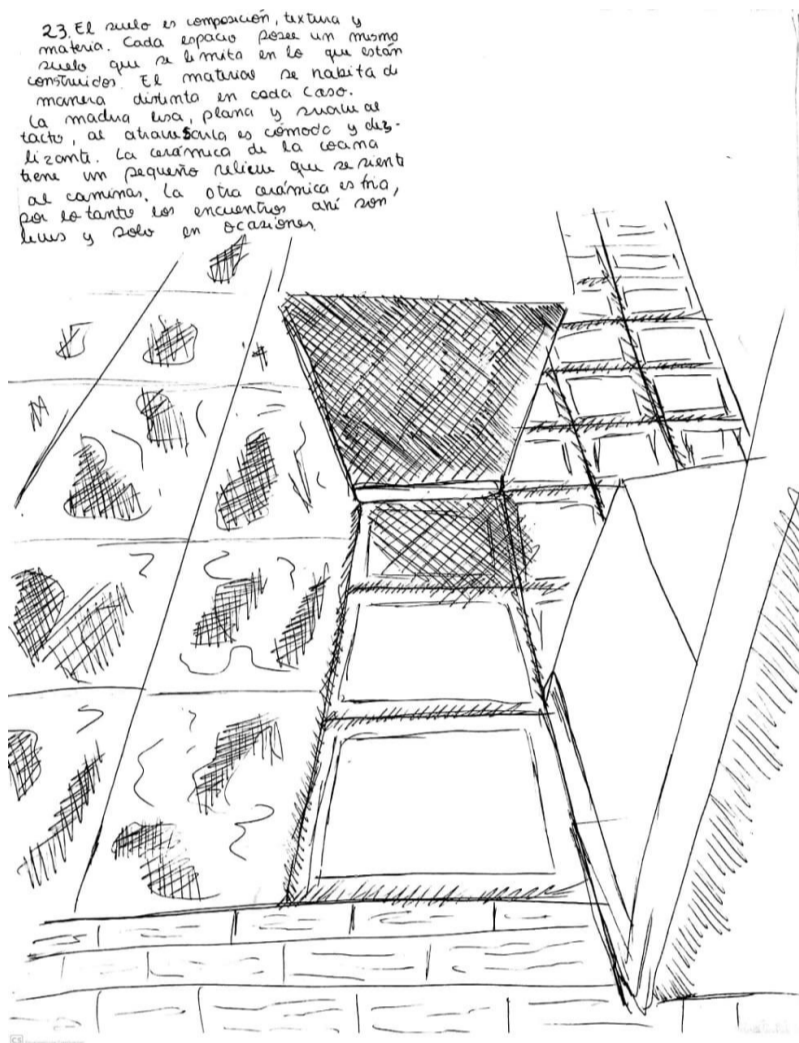 23. El suelo es composición, textura y
materia. Cada espacio posee un mismo
suelo que se limita en lo que están
construidos. El material se habita de
manera distinta en cada caso.
La madera lisa, plana y suave al
tacto, al atravesarla es cómodo y dez-
lizante. La cerámica de la cocina
tiene un pequeño relieve que se siente
al caminar. La otra cerámica es fria,
por lo tanto los encuentros ahí son,
leves y solo en ocasiones.
CS